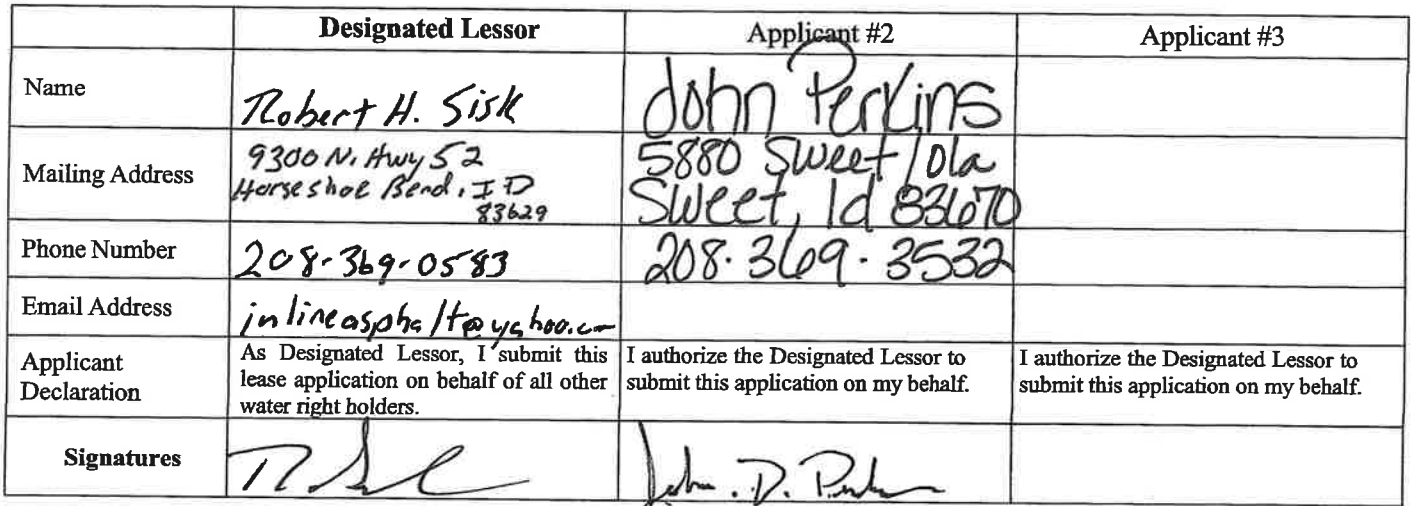 Designated Lessor Applicant #2 Applicant #3
Name Robert H. Sisk John Perkins
Mailing Address
9300 N. Hwy 52
Horseshoe Bend, ID
83629
5880 Sweet/Ola
Sweet, Id 83670
Phone Number 208-369-0583 208.369.3532
Email Address inlineasphalt@yahoo.com
Applicant
Declaration
As Designated Lessor, I submit this
lease application on behalf of all other
water right holders.
I authorize the Designated Lessor to
submit this application on my behalf.
I authorize the Designated Lessor to
submit this application on my behalf.
Signatures John. D. Perkins